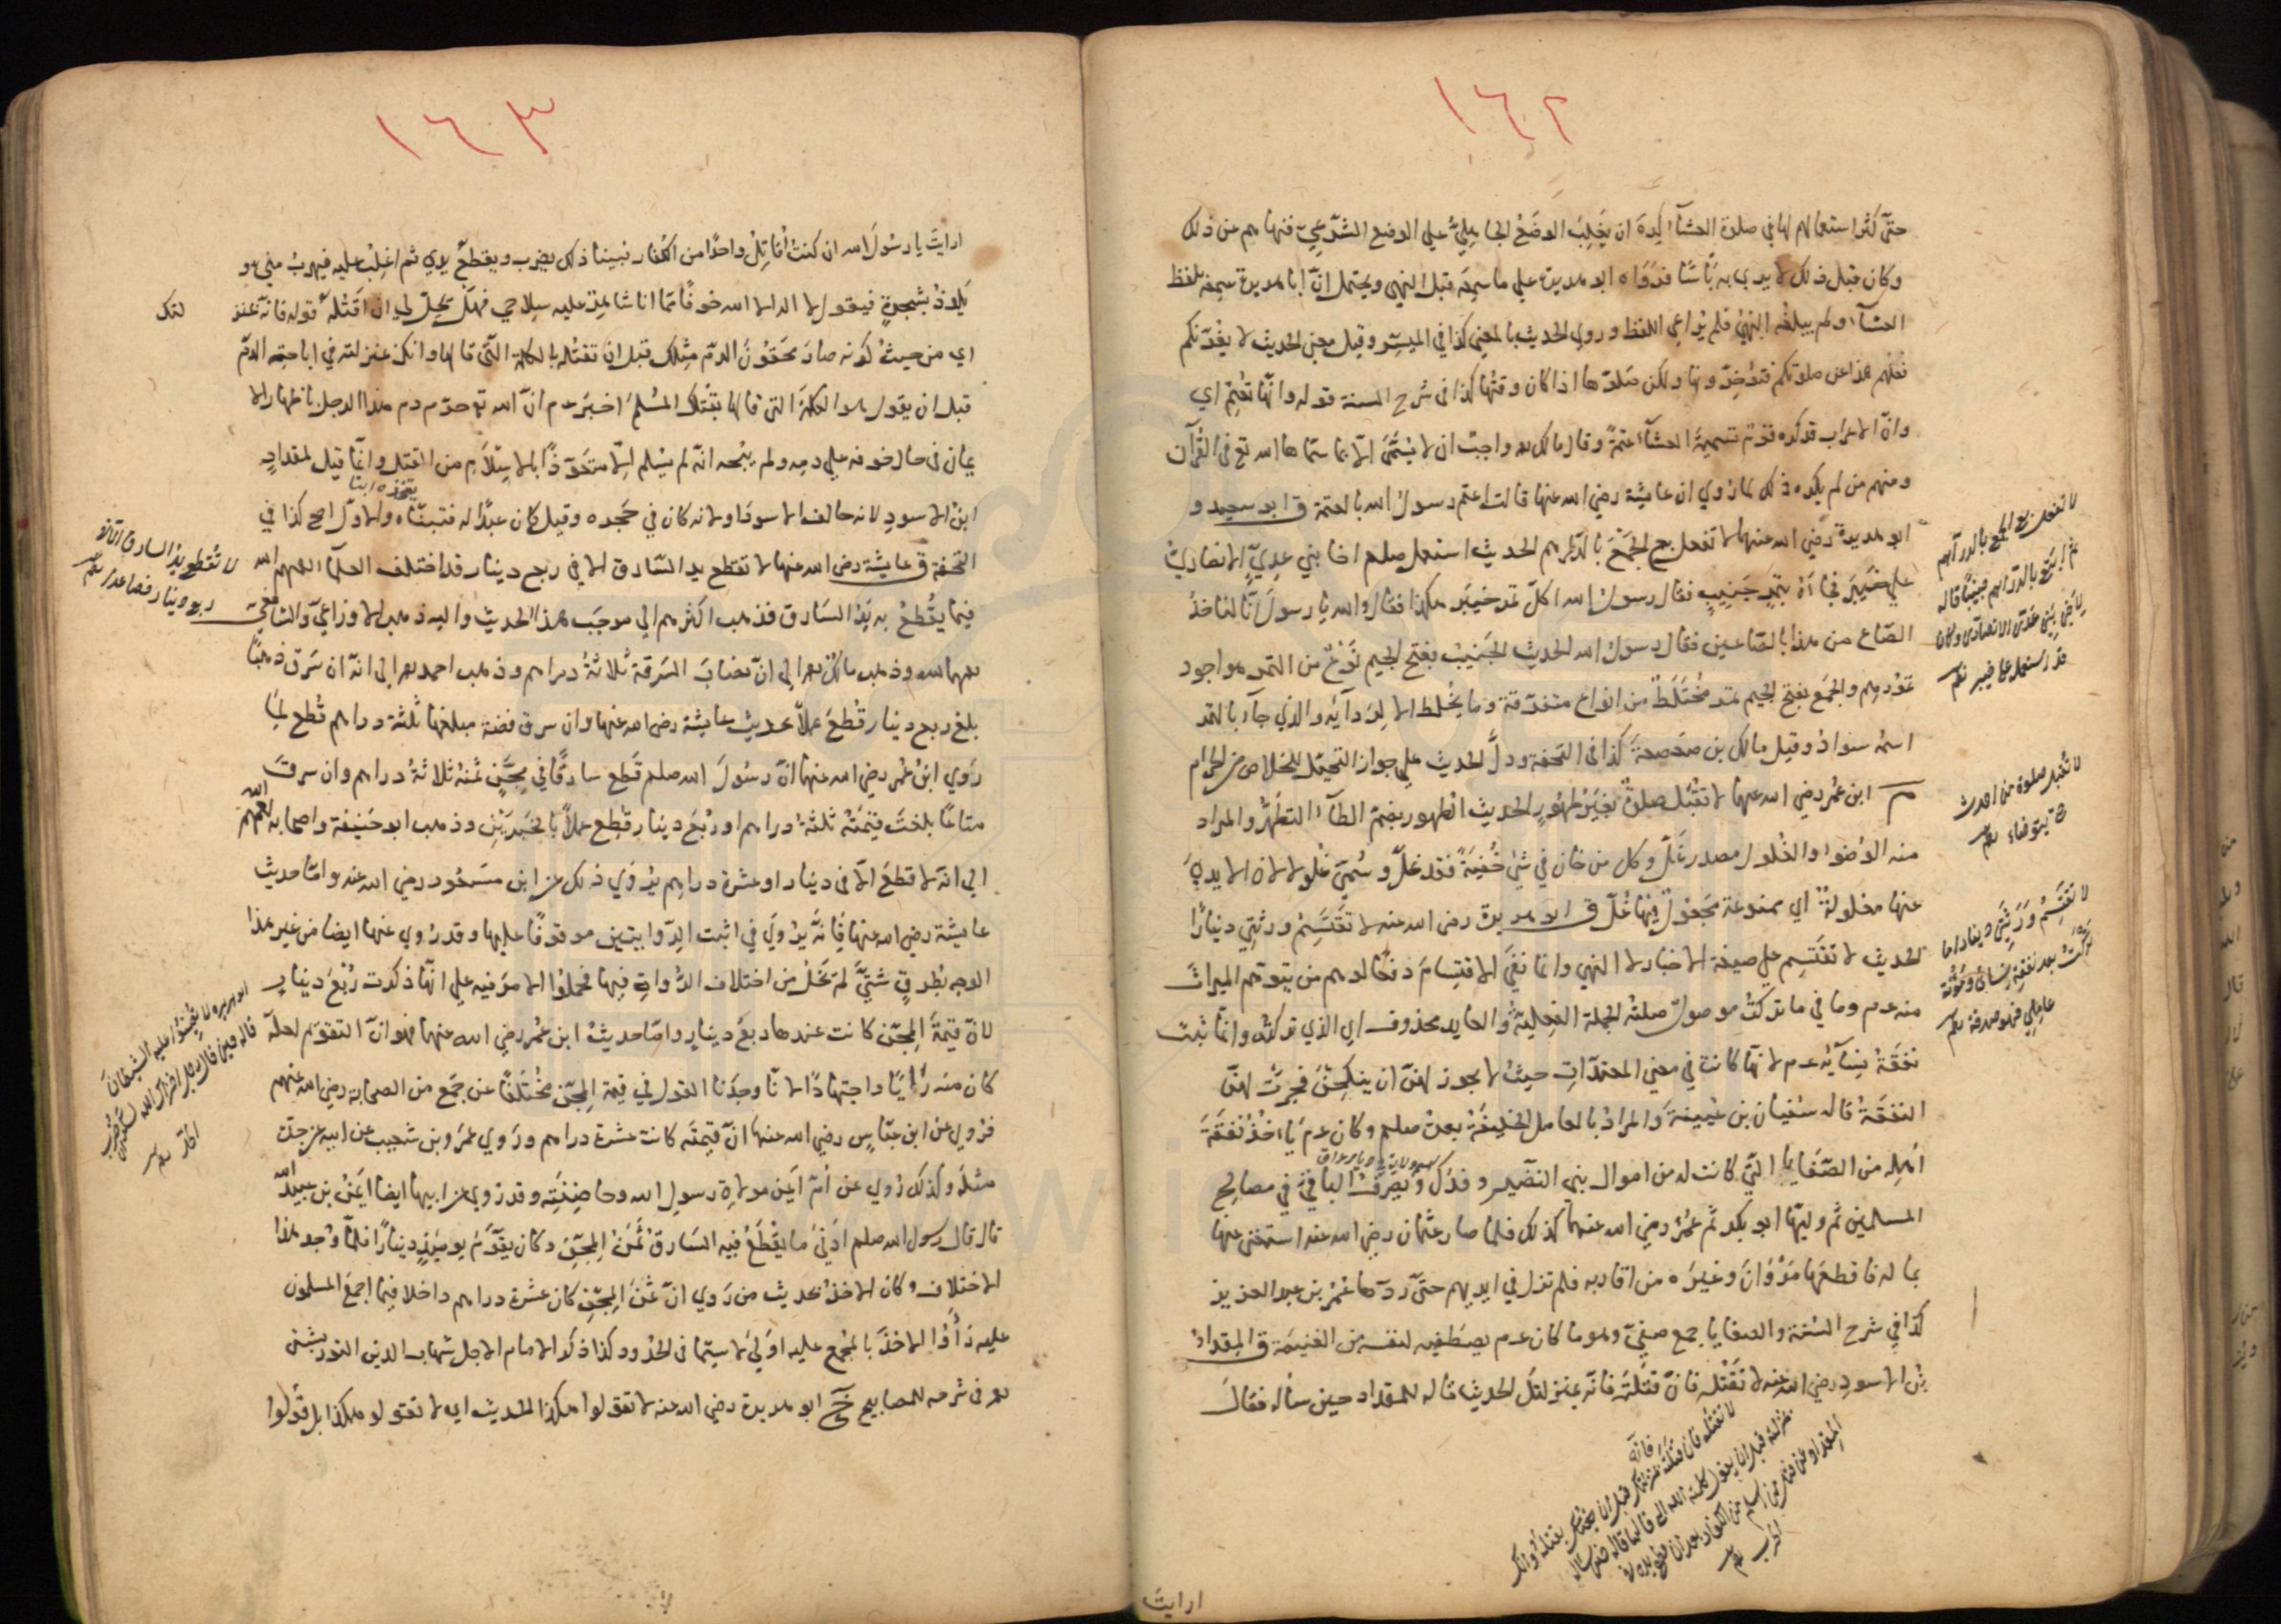 ١٦٢
حتّى كثر استعمالهم لها في صلوة العشآء كيده ان يَغلِبَ الوضعُ الجاهليّ على الوضع الشّرعيّ فنهاهم عن ذلك
وكان قبل ذلك لا يرى به بأسًا فروَاه ابو هريرة على ما سمِعَه قبل النهي ويحتمل انّ ابا هريرة سمعه بلفظ
العشآء ولم يبلغه النهيُ فلم يُراعِي اللفظ وروى الحديث بالمعنى كذا في الميسّر وقيل معنى الحديث لا يغُرّنّكم
فعلهم هذا عن صلوتكم فتؤخّرونها ولكن صَلّوها اذا كان وقتها كذا في شرح السنة قوله وانّها تُعْتِمُ اي
وانّ الاعراب قد كره قوم تسميةَ العشآء عتمةً وقال مالك واجبٌ ان لا يُسَمّى الّا بما سمّاها الله تع في القرآن
ومنهم من لم يكره ذلك لما رُوي ان عايشة رضي الله عنها قالت اعتم رسول الله بالعتمة ق ابو سعيد و
ابو هريرة رضي الله عنهما لا تفعل بع الجَمْعَ بالدّراهم الحديث استعمل صلعم اخا بني عديٍّ الانصاريّ
على خيبر فجآءه بتمرٍ جَنيبٍ فقال رسول الله اكلّ تمر خيبر هكذا فقال والله يا رسول انّا لناخذ
الصّاع من هذا بالصّاعين فقال رسول الله الحديث الجَنيبُ بفتح الجيم نَوْعٌ من التمر هو اجود
تمورهم والجَمع بفتح الجيم تمر مُختَلَطٌ من انواع متفرّقة وما يُخلط الّا لِرَدآءته والذي جآء بالتمر
اسمه سوادٌ وقيل مالك بن صعصعةَ كذا في التحفة ودلّ الحديث على جواز التحيّل للخلاص من الحرام
م ابن عمر رضي الله عنهما لا تُقْبَل صلوةٌ بغير طُهُورٍ الحديث الطّهور بضمّ الطّآء التطهّر والمراد
منه الوُضوء والغُلول مصدر غَلّ وكل من خان في شئ خُفيَةً فقد غلّ وسُمّي غلولا لانّ الايديَ
عنها مغلولةٌ اي ممنوعة مجعولٌ فيها غُلّ ق ابو هريرة رضي الله عنه لا تقتسِمُ ورثتي دينارًا
الحديث لا تقتسِم على صيغة الاخبار لا النهي وانما نفى الاقتسامَ دفعًا لوهم من يتوهّم الميراث
منه عم وما في ما تركتُ موصولٌ صلته الجملة الفعليّة والعايد محذوف اي الذي تركته وانّما ثبت
نفقةُ نسآئه عم لانّها كانت في معنى المعتدّاتِ حيث لا يجوز لهنّ ان ينكِحْنَ فجرَتْ لهنّ
النفقةُ قاله سُفيان بن عُيينةَ والمرادُ بالعامل الخليفةُ بعدَ صلعم وكان عم يأخذُ نفقةَ
اهله من الصّفايا التي كانت له من اموال بني النّضير وفدَك ويصرِفُ الباقي في مصالح
المسلمين ثم وليها ابو بكر ثم عمر رضي الله عنهما كذلك فلما صار عثمان رضي الله عنه استغنى عنها
بماله فاقطعها مَرْوَانَ وغيرَه من اقاربه فلم تزل في ايديهم حتّى ردّها عُمر بن عبد العزيز
كذا في شرح السّنة والصفايا جمع صفيّ وهو ما كان عم يصطفيه لنفسه من الغنيمة ق المقدادُ
بن الاسودِ رضي الله عنه لا تقْتله فانْ قتلتَه فانّه بمنزلتك الحديث قاله للمقداد حين سأله فقالَ
لا تفعل بع الجمع بالدراهم
ثم ابتع بالدراهم جنيبًا قاله
لاخي بني عدي الانصاري وكان
قد استعمله على خيبر
لا تقبل صلوة من احدث
حتى يتوضاء
لا تقتسِمُ وَرَثتي دينارًا ما
تركتُ بعد نفقة نسائي ومؤنة
عاملي فهو صدقة
لا تقتله فان قتلتَه فانّه بمنزلتك قبل ان تقتله وانك
بمنزلته قبل ان يقول كلمته التي قالها قاله حين ساله
المقداد عن قتل من اسلم من الكفار بعد ان قطع يده في
الحرب
ارايتَ
١٦٣
ارايتَ يا رسُولَ الله ان كنتُ أقاتِلُ واحدًا من الكفار فبينا ذلك يضرب ويقطعُ يدي ثم اغلِبُ عليه فيهربُ منّي هو
يَلوذُ بشجرةٍ فيقول لا اله الا الله خوفًا مما انا شاهرٌ عليه سلاحي فهل يحِلّ لي ان اقتُلَه قوله فانّه بمنز لتك
اي من حيثُ كونه صارَ محقُونَ الدّم مِثلك قبل ان تقتُله بالكلمة التّي قالها وانك بمنزلته في اباحته الدّم
قبل ان يقول هو الكلمةَ التي قالها بقتلك المُسْلم اخبرَ عم انّ الله تع حرّم دم هذا الرجل باظهار الا
يمان في حال خوفه على دمه ولم يبُحْه انّه لم يُسْلم الّا متعوّذًا بالاسلام من القتل وانّما قيل لمقدادٍ
ابن الاسودِ لانه حالف الاسودَ او لانه كان في حَجره وقيل كان عبدًا له فتبنّاه والاول اصح كذا في
يتخذه ابنا
التحفة ق عايشة رض الله عنها لا تقطع يد السّارق الا في ربع دينار قد اختلف العلمآء رحمهم الله
فيما يُقْطعُ به يَدُ السّارق فذهب اكثرهم الي موجَب هذا الحديث واليه ذهب الاوزاعيّ والشافعيّ
رحمهما الله وذهب مالك الى انّ نصابَ السَرقة ثلاثةُ دراهم وذهب احمد الى انّه ان سَرق ذهبًا
بلغ ربع دينار قُطِعَ عملًا بحديث عايشة رضي الله عنها وان سرق فضة مبلغها ثلثة دراهم قُطع لما
رَوي ابنُ عُمر رضي الله عنهما انّ رسُولَ الله صلعم قَطع سارقًا في مِجَنٍّ ثمنُهُ ثلاثةُ دراهم وان سرقَ
متاعًا بلغَت قيمتُه ثلثة دراهم او رُبْعَ دينار قُطِع عملًا بالخبرَيْنِ وذهب ابو حنيفة واصحابه رحمهم الله
الى انّه لا قطعَ الّا في دينار او عشرة دراهم يُروي ذلك عن ابن مسعود رضي الله عنه وامّا حديث
عايشة رضي الله عنها فانّه يُروَي في اثبت الرّوايتين موقوفًا عليها وقد رُوي عنها ايضا من غير هذا
الوجه بطُرقٍ شتّى لم تخلُ من اختلاف الرّواةِ فيها فحملُوا الامرَ فيه على انّها ذكرت رُبْعَ دينارٍ
لانّ قيمةَ المِجَنّ كانت عندها ربعَ دينارٍ وامّا حديثُ ابن عُمر رضي الله عنهما فهو انّ التقويم لعلّه
كان منه رأيًا واجتهادًا لانّا وجدنا القول في قيمة المِجَنّ مُختلَفًا عن جَمع من الصحابة رضي الله عنهم
فرُوِي عن ابن عبّاسٍ رضي الله عنهما انّ قيمتَه كانت عشرة دراهم ورَوي عَمرو بن شعيب عن ابيه عن جدّه
مثلَه وكذلك رُوي عن أمّ ايمن مولاةِ رسول الله وحاضِنَتِه وقد رُوي عن ابنها ايضا ايمَنُ بن عبيد الله
قال قال رسول الله صلعم ادنى ما يُقْطَعُ فيه السّارق ثمَنُ المِجَنّ وكان يقوَّمُ يوميئذٍ دينارًا فلمّا وُجد هذا
الاختلاف وكان الاخذُ بحديث من رَوي انّ ثمَنَ المِجَنّ كان عشرة دراهم داخلا فيما اجمعَ المسلمون
عليه رأوْا الاخذَ بالمُجْمع عليه اوْلى لا سيّما في الحُدود كذا ذكر الامام الاجل شهاب الدين التوربشتي
في شرحه للمصابيح خ ابو هريرة رضي الله عنه لا تقولوا هكذا الحديث اي لا تقولو هكذا بل قولُوا
لا تُقطع يدُ السارق الا في
ربع دينار فصاعدا
ابو هريره لا تعينُوا عليه الشيطانَ
قاله حين قال رجل اخزاك الله لسكران ضُرب
الحدّ